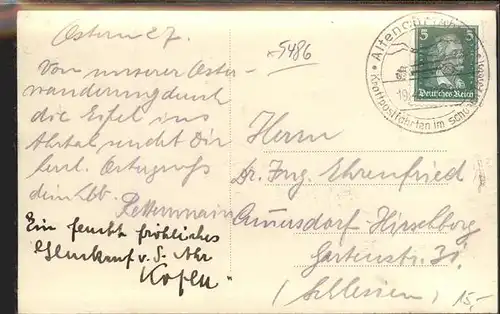 Ostern 27.
Von unserer Oster-
wanderung durch
die Eifel ins
Ahrtal sendet Dir
herzl. Ostergruß
dein Lbb.
Ein feucht fröhliches
"Glückauf v. d. Ahr
5486
Altenahr
Kraftpostfahrten im schönen
5 5
Deutsches Reich
Herrn
Dr. Ing. Ehrenfried
Cunersdorf Hirschberg
Gartenstr. 31
(Schlesien)
15,-